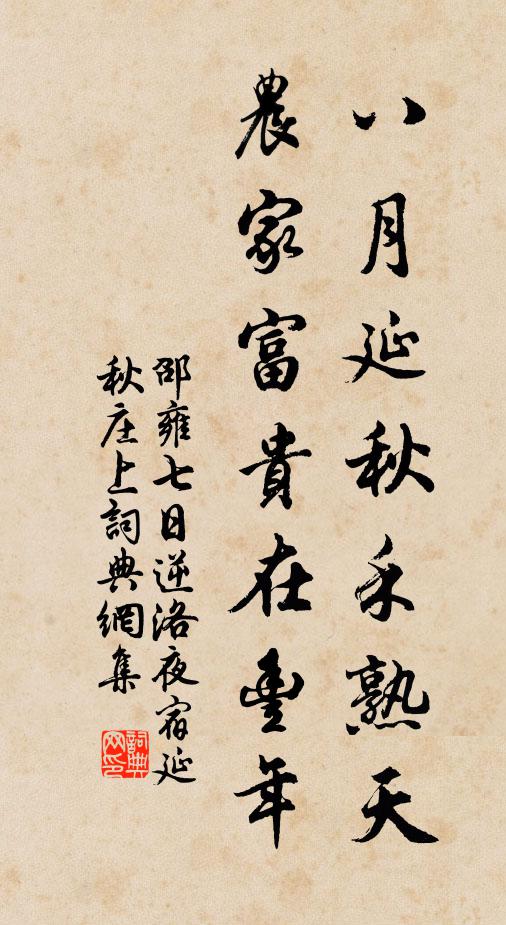 八月延秋禾熟天
農家富貴在豐年
邵雍七日逆洛夜宿延
秋庄上詞典網集
詞典
网印